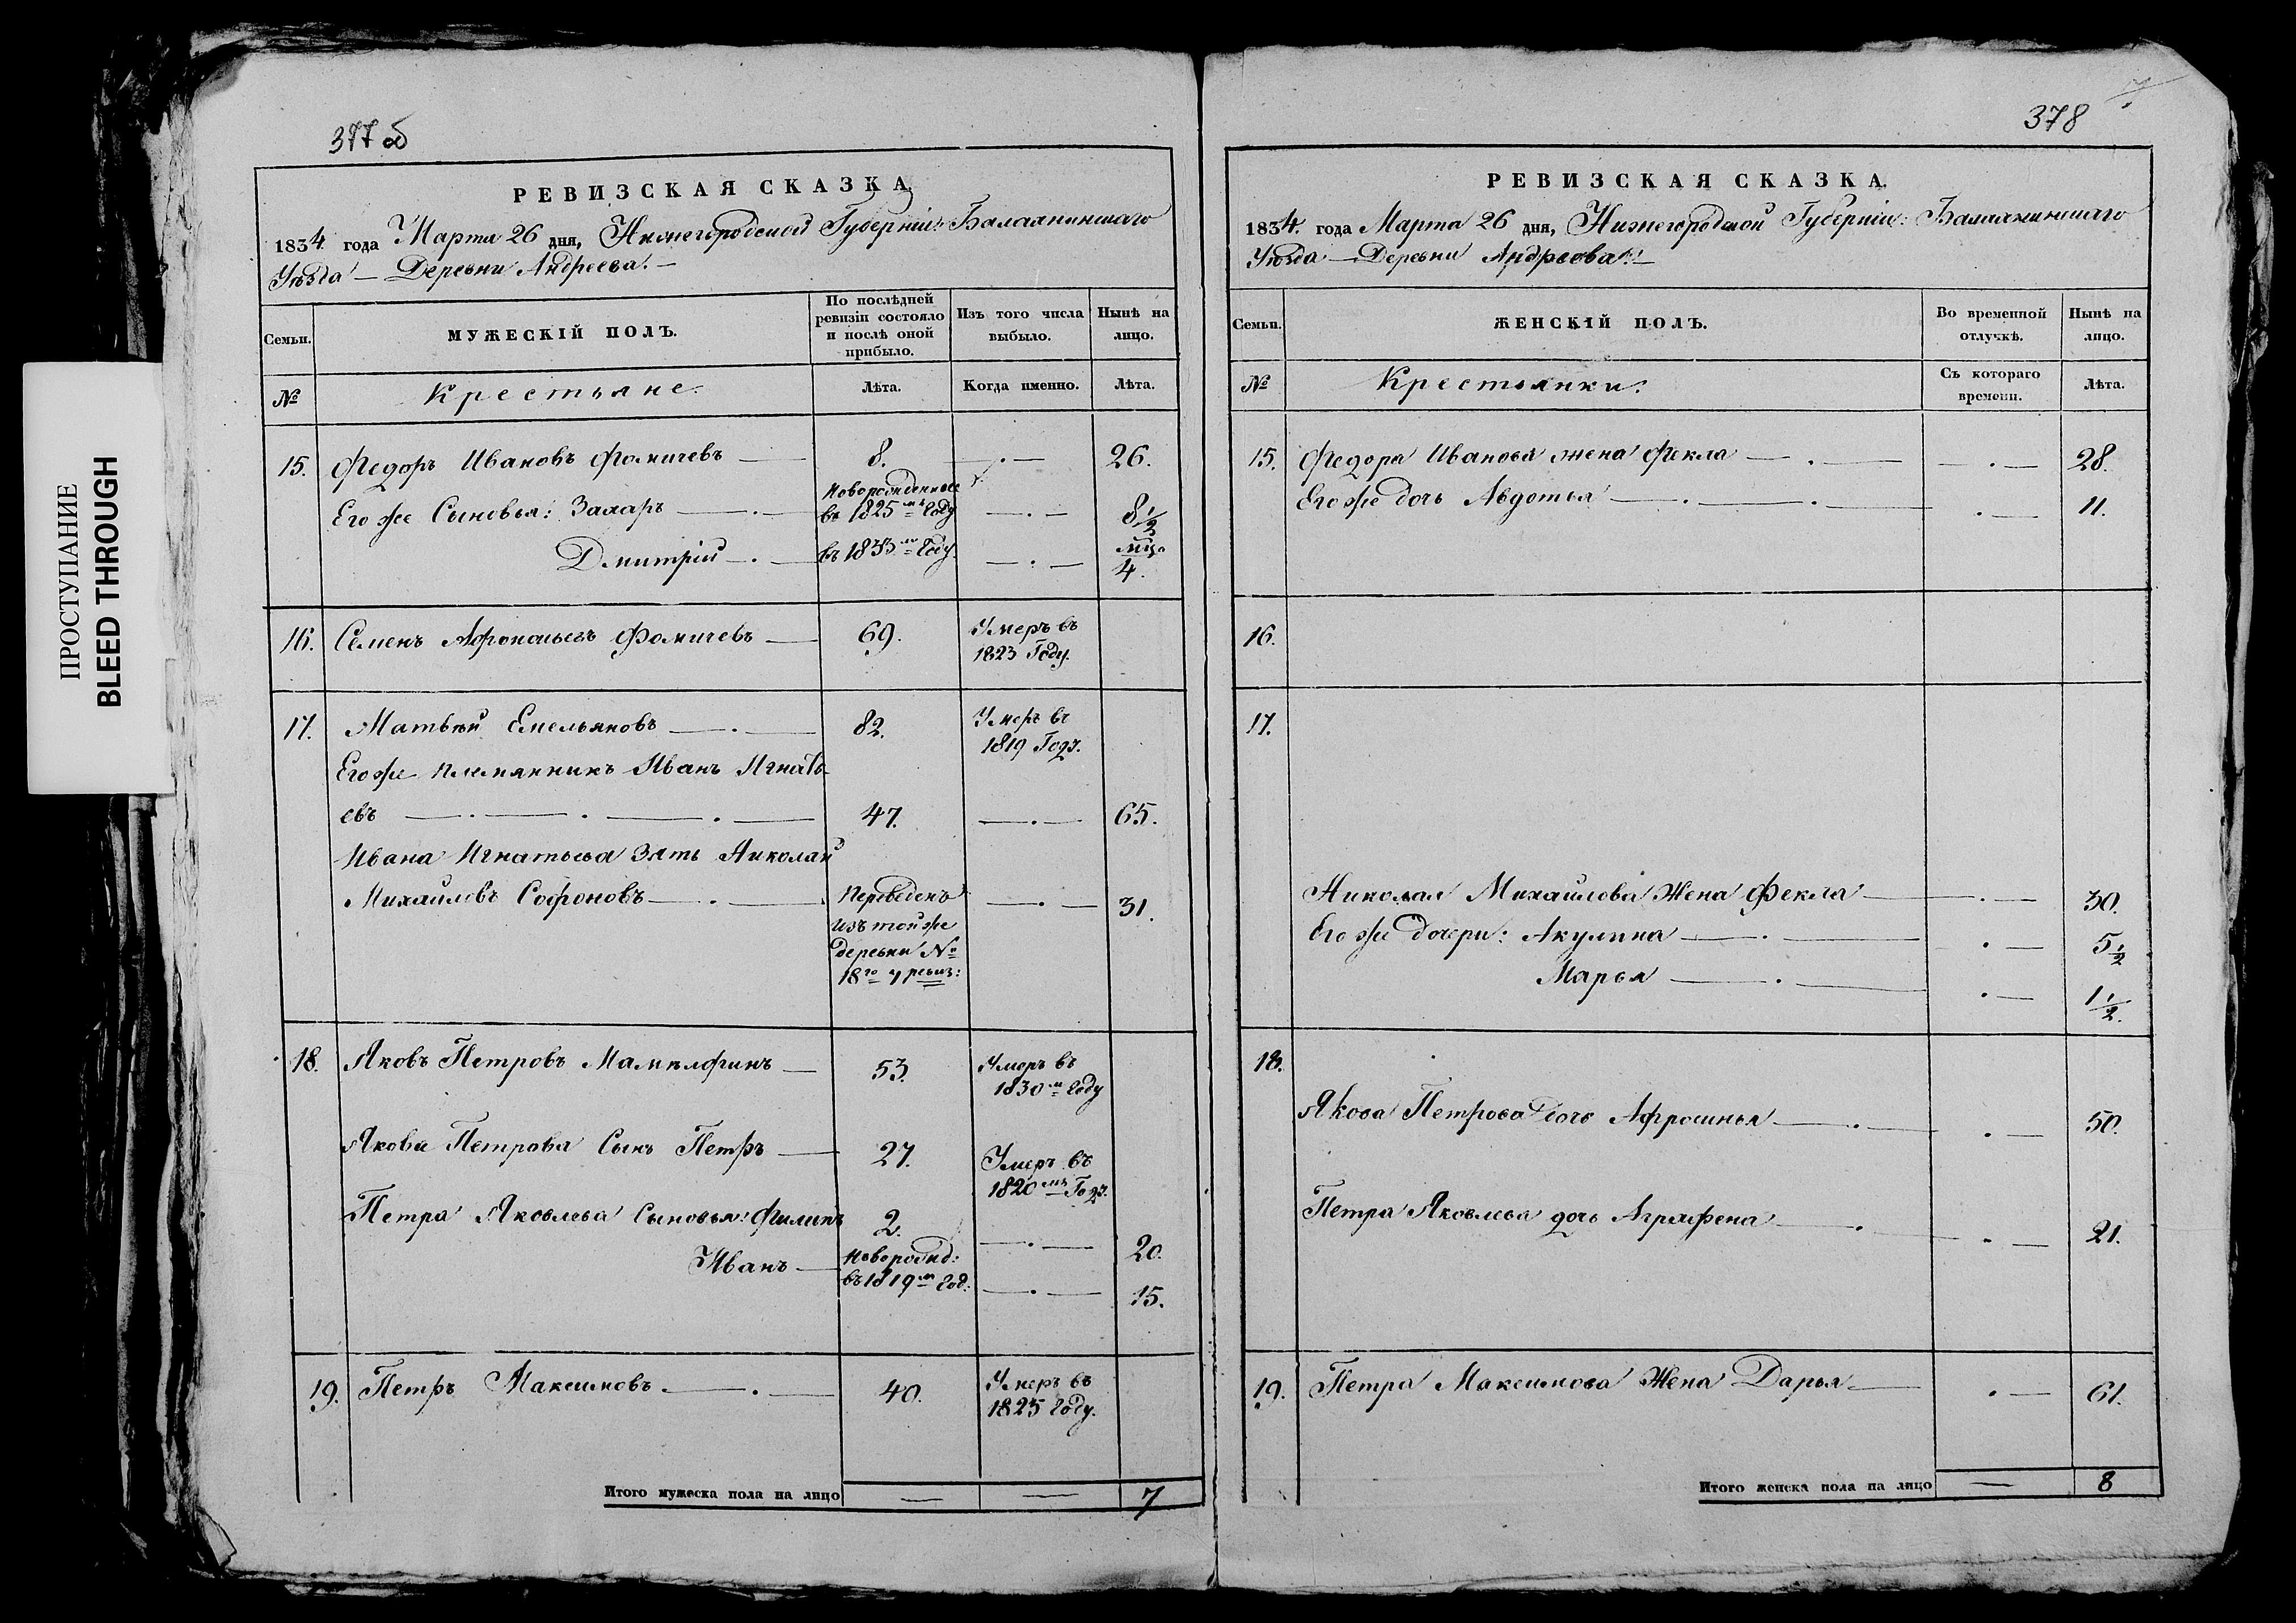 ПРОСТУПАНИЕ
BLEED THROUGH
377 об
РЕВИЗСКАЯ СКАЗКА,
1834 года Марта 26 дня, Нижегородской Губерніи: Балахнинскаго
Уѣзда — Деревни Андреева. —
Семьи.
МУЖЕСКІЙ ПОЛЪ.
По послѣдней
ревизіи состояло
и послѣ оной
прибыло.
Изъ того числа
выбыло.
Нынѣ на
лицо.
№
Крестьяне.
Лѣта.
Когда именно.
Лѣта.
15. Федоръ Ивановъ Фомичевъ — 8. — . — 26.
Новорожденные
Его же Сыновья: Захаръ — . — въ 1825 мъ Году — . — 8 1/2
Дмитрій — . — въ 1833 мъ Году. — . — мц. 4.
16. Семенъ Афонасьевъ Фомичевъ — 69. Умеръ въ
1823 Году.
17. Матвѣй Емельяновъ — . — 82. Умеръ въ
1819 Году.
Его же племянникъ Иванъ Игнать-
евъ — . — . — . — 47. — . — 65.
Ивана Игнатьева Зять Николай
Михайловъ Софоновъ — . — Переведенъ — . — 31.
изъ той же
деревни №
18го 7 ревиз:
18. Яковъ Петровъ — 53. Умеръ въ
1830 мъ Году
Якова Петрова Сынъ Петръ — 27. Умеръ въ
1820 мъ Году.
Петра Яковлева Сыновья: Филипъ 2. — . — 20.
Иванъ — Новорожд:
въ 1819 мъ Год: — . — 15.
19. Петръ Максимовъ. — . — 40. Умеръ въ
1825 Году.
Итого мужеска пола на лицо — — 7
378
РЕВИЗСКАЯ СКАЗКА.
1834. года Марта 26 дня, Нижегородской Губерніи: Балахнинскаго
Уѣзда — Деревни Андреева. —
Семьи.
ЖЕНСКІЙ ПОЛЪ.
Во временной
отлучкѣ.
Нынѣ на
лицо.
№
Крестьянки.
Съ котораго
времени.
Лѣта.
15. Федора Иванова жена Фекла — . — — . — 28.
Его же дочь Авдотья — . — . — . — 11.
16.
17.
Николая Михайлова Жена Фекла — . — 30.
Его же дочери: Акулина — . — . — 5 1/2
Марья — . — . — 1 1/2.
18.
Якова Петрова дочь Афросинья — . — . — 50.
Петра Яковлева дочь Аграфена — . — . — 21.
19. Петра Максимова Жена Дарья — . — 61.
Итого женска пола на лицо — 8